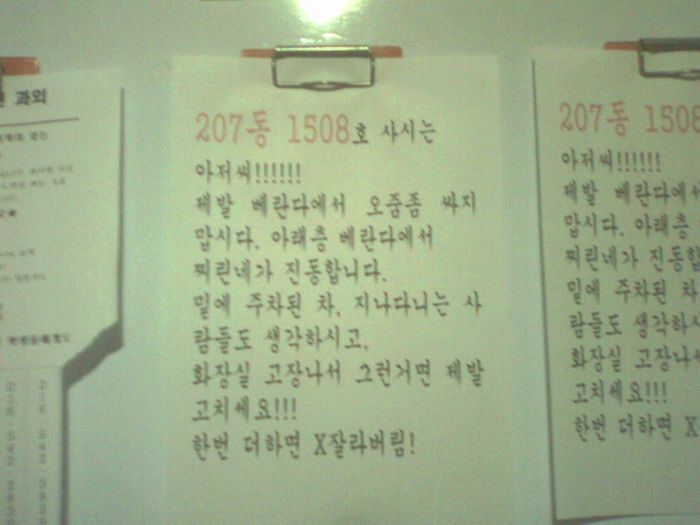 과외
207동 1508호 사시는
아저씨!!!!!!
제발 베란다에서 오줌좀 싸지
맙시다. 아래층 베란다에서
찌린네가 진동합니다.
밑에 주차된 차, 지나다니는 사
람들도 생각하시고,
화장실 고장나서 그런거면 제발
고치세요!!!
한번 더하면 X잘라버림!
207동 1508
아저씨!!!!!!
제발 베란다에
맙시다. 아래층
찌린네가 진동합
밑에 주차된 차
람들도 생각하시
화장실 고장나
고치세요!!!
한번 더하면 X